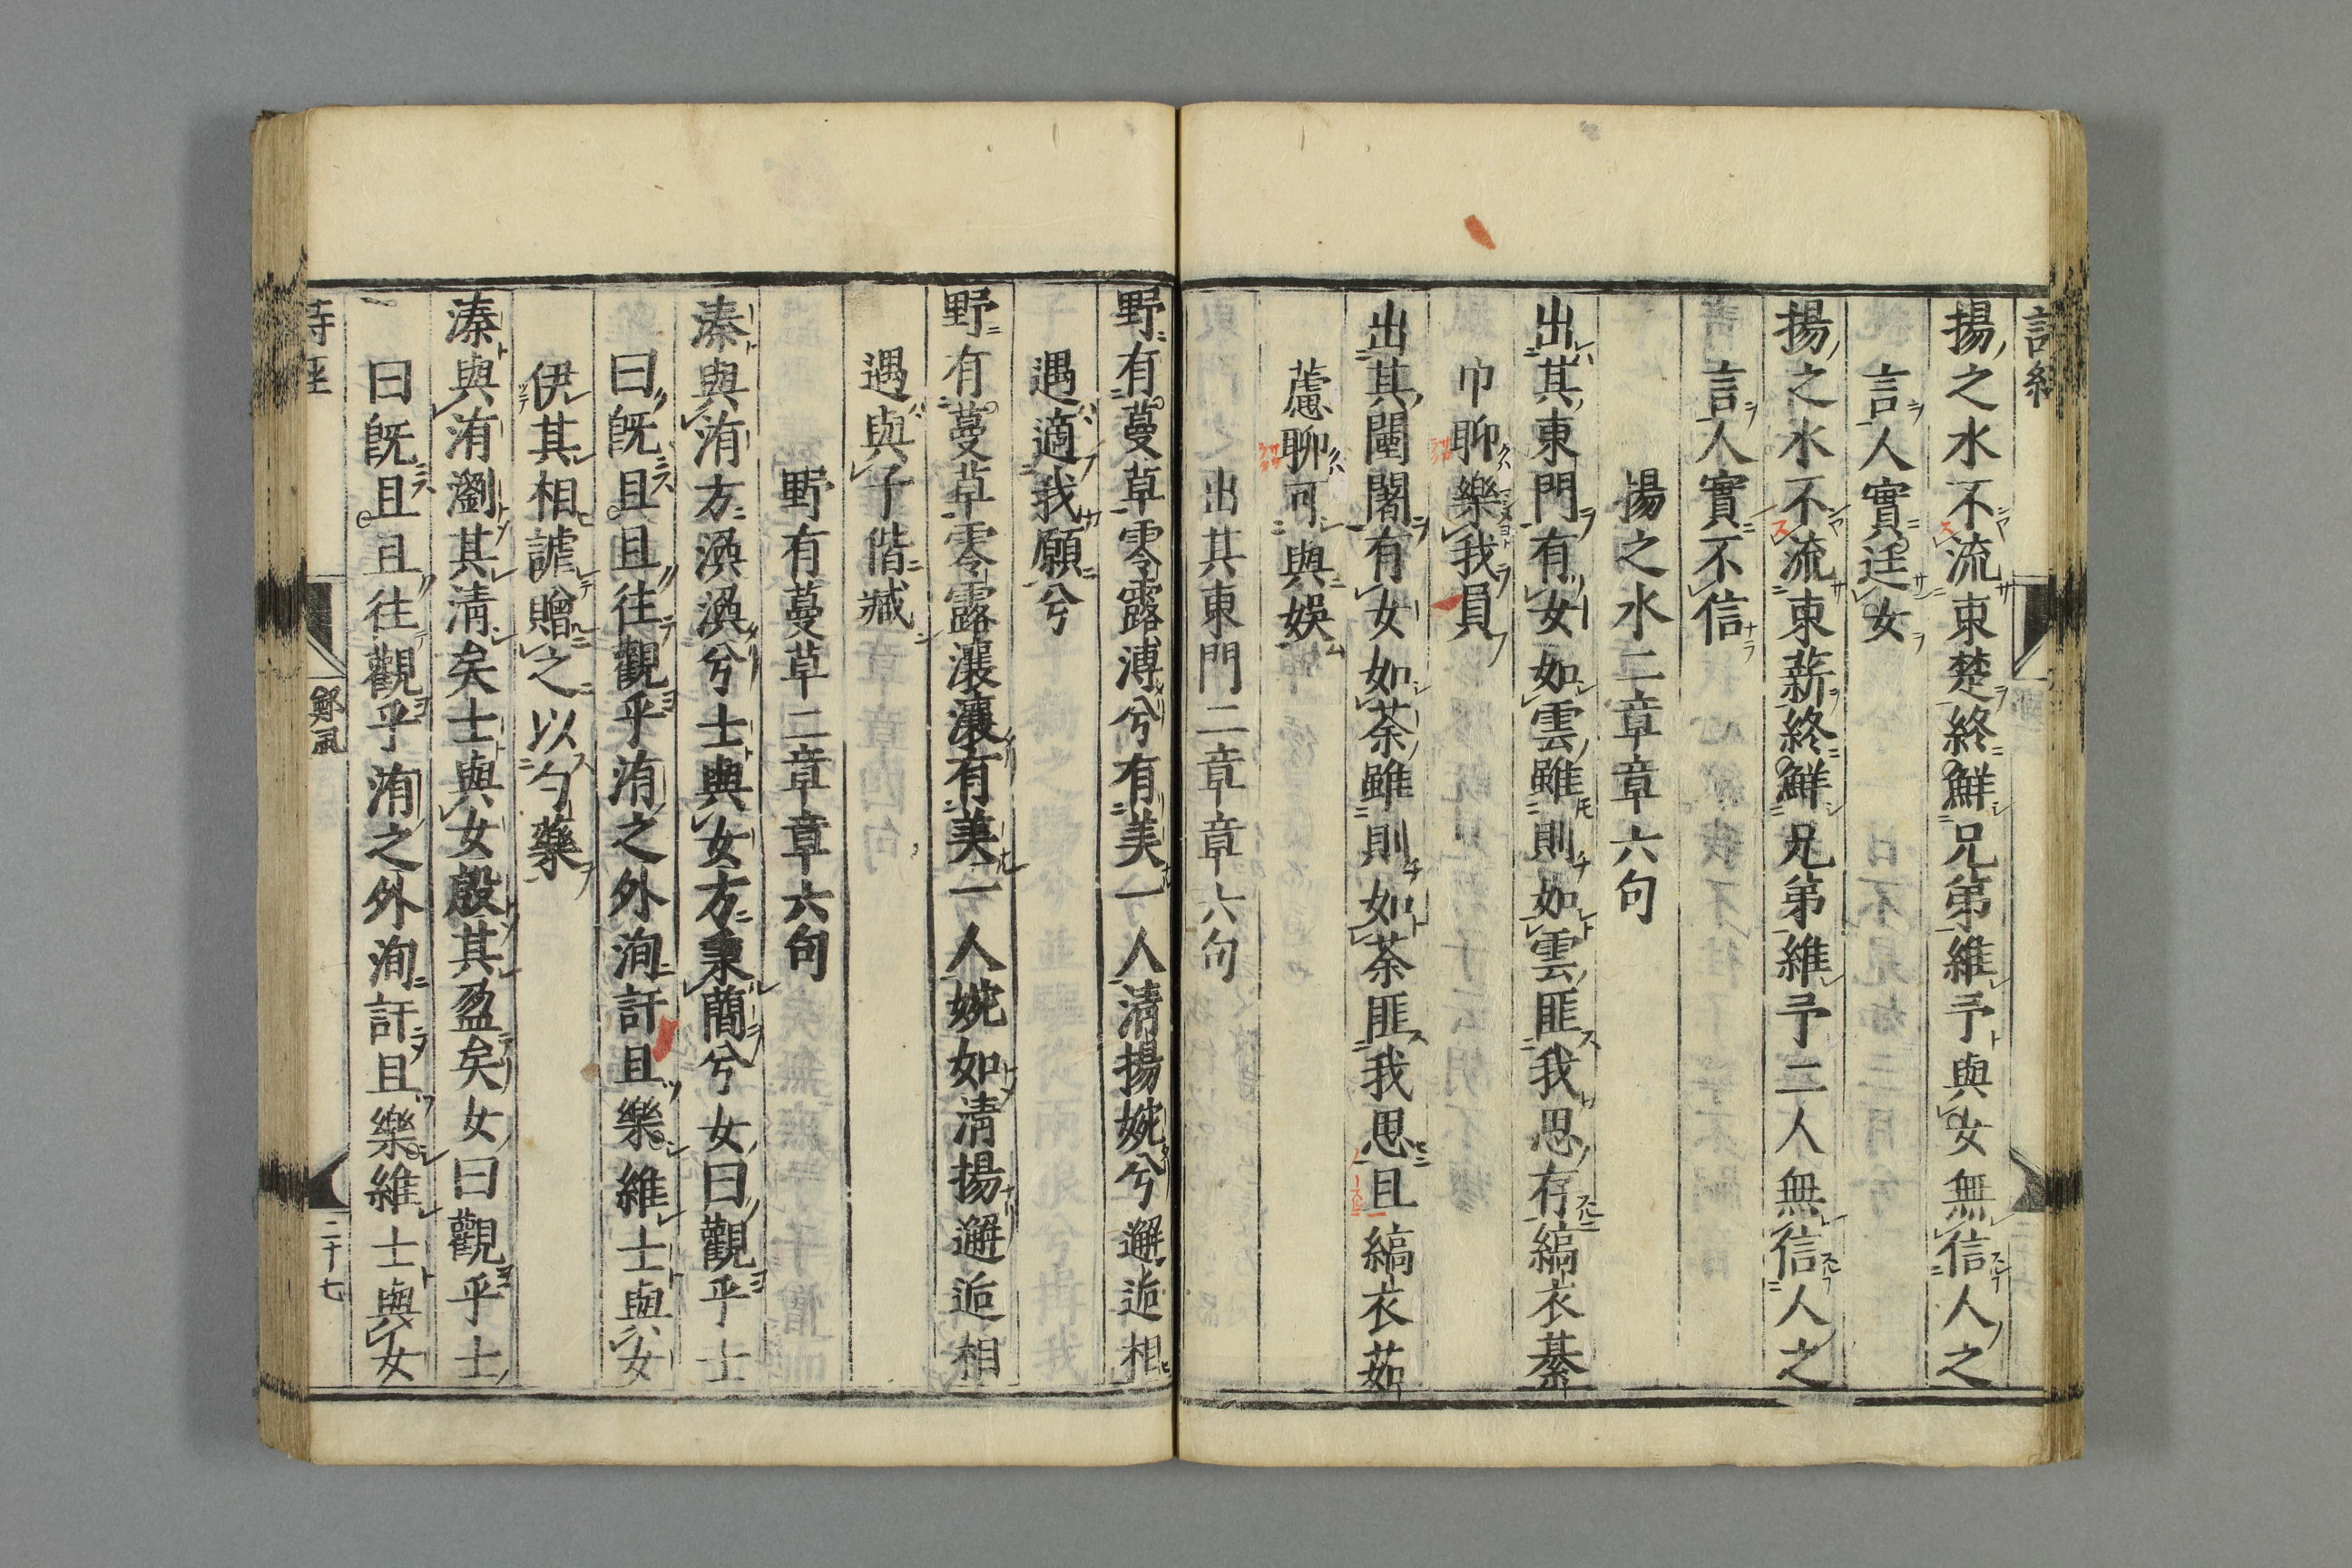 詩經
揚之水不流束楚終鮮兄弟維予與女無信人之
言人實迋女
揚之水不流束薪終鮮兄弟維予二人無信人之
言人實不信
揚之水二章章六句
出其東門有女如雲雖則如雲匪我思存縞衣綦
巾聊樂我員
出其闉闍有女如荼雖則如荼匪我思且縞衣茹
藘聊可與娛
出其東門二章章六句
野有蔓草零露漙兮有美一人清揚婉兮邂逅相
遇適我願兮
野有蔓草零露瀼瀼有美一人婉如清揚邂逅相
遇與子偕臧
野有蔓草二章章六句
溱與洧方渙渙兮士與女方秉蕳兮女曰觀乎士
曰旣且且往觀乎洧之外洵訏且樂維士與女
伊其相謔贈之以勺藥
溱與洧瀏其清矣士與女殷其盈矣女曰觀乎士
曰旣且且往觀乎洧之外洵訏且樂維士與女
詩經
鄭風
二十七